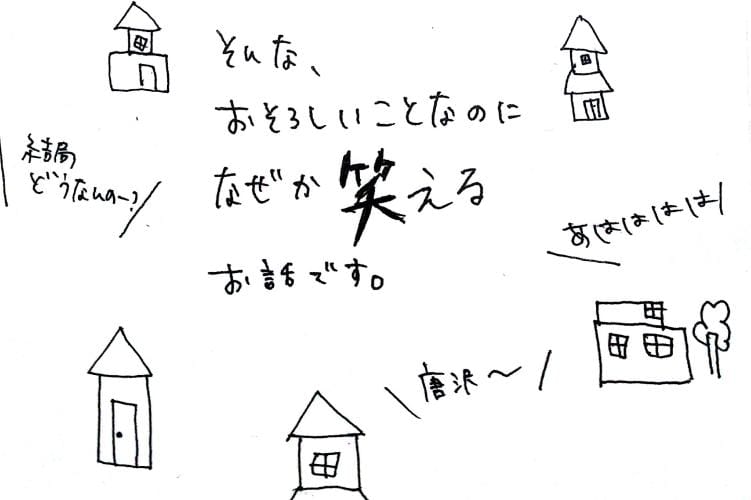 そんな、
おそろしいことなのに
なぜか笑える
お話です。
結局
どうなんの〜?
あはははは!
唐沢〜